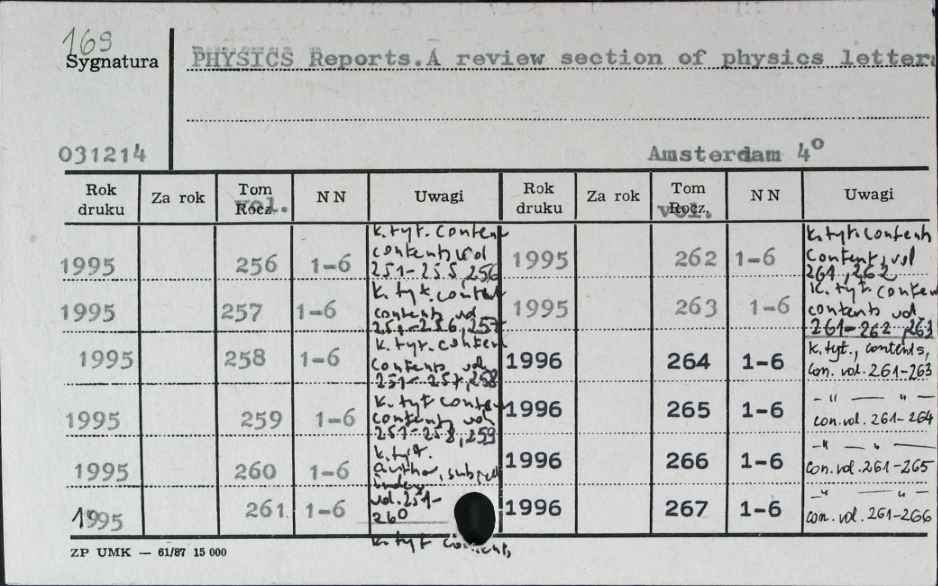 169
Sygnatura
PHYSICS Reports.A review section of physics letters
031214
Amsterdam 4°
Rok druku Za rok Tom Rocz. vol. N N Uwagi Rok druku Za rok Tom Rocz. vol. N N Uwagi
1995 256 1-6 k. tyt. content contents vol 251-255, 256 1995 262 1-6 k. tyt. contents contents, vol 261, 262
1995 257 1-6 k. tyt. content contents vol 251-256, 257 1995 263 1-6 k. tyt. conten contents vol. 261-262, 263
1995 258 1-6 k. tyt. content contents vol 251-257, 258 1996 264 1-6 k. tyt., contents, con. vol. 261-263
1995 259 1-6 k. tyt conten contents, vol 251-258, 259 1996 265 1-6 -"- -"- con. vol. 261-264
1995 260 1-6 k. tyt. author, subject index vol. 251-260 1996 266 1-6 -"- -"- con. vol. 261-265
1995 261 1-6 k. tyt 1996 267 1-6 -"- -"- con. vol. 261-266
ZP UMK — 61/87 15 000